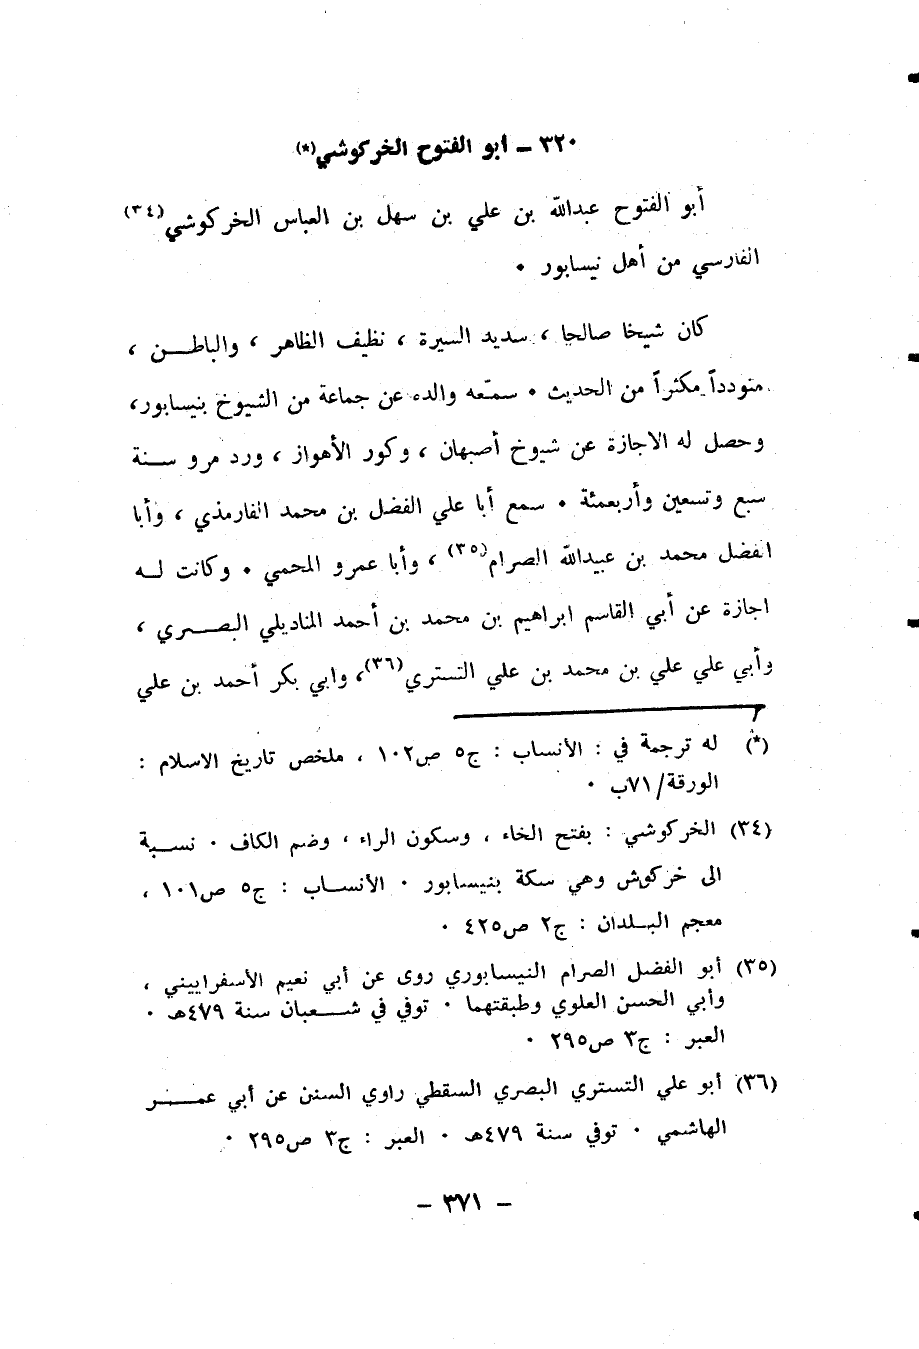 ٣٢٠ ـ ابو الفتوح الخركوشي(*)
أبو الفتوح عبدالله بن علي بن سهل بن العباس الخركوشي(٣٤)
الفارسي من أهل نيسابور ٠
كان شيخا صالحا ، سديد السيرة ، نظيف الظاهر ، والباطــن ،
متودداً مكثراً من الحديث ٠ سمّعه والده عن جماعة من الشيوخ بنيسابور،
وحصل له الاجازة عن شيوخ أصبهان ، وكور الأهواز ، ورد مرو ســنة
سبع وتسعين وأربعمئة ٠ سمع أبا علي الفضل بن محمد الفارمذي ، وأبا
الفضل محمد بن عبيدالله الصرام(٣٥) ، وأبا عمرو المحمي ٠ وكانت لــه
اجازة عن أبي القاسم ابراهيم بن محمد بن أحمد المناديلي البصــري ،
وأبي علي علي بن محمد بن علي التستري(٣٦)، وابي بكر أحمد بن علي
(*) له ترجمة في : الأنساب : ج٥ ص١٠٢ ، ملخص تاريخ الاسلام :
الورقة/٧١ب ٠
(٣٤) الخركوشي : بفتح الخاء ، وسكون الراء ، وضم الكاف ٠ نســبة
الى خركوش وهي سكة بنيسابور ٠ الأنســاب : ج٥ ص١٠١ ،
معجم البـلدان : ج٢ ص٤٢٥ ٠
(٣٥) أبو الفضل الصرام النيسابوري روى عن أبي نعيم الأسفراييني ،
وأبي الحسن العلوي وطبقتهما ٠ توفي في شــعبان سنة ٤٧٩هـ ٠
العبر : ج٣ ص٢٩٥ ٠
(٣٦) أبو علي التستري البصري السقطي راوي السنن عن أبي عمــر
الهاشمي ٠ توفي سنة ٤٧٩هـ ٠ العبر : ج٣ ص٢٩٥ ٠
ـ ٣٧١ ـ